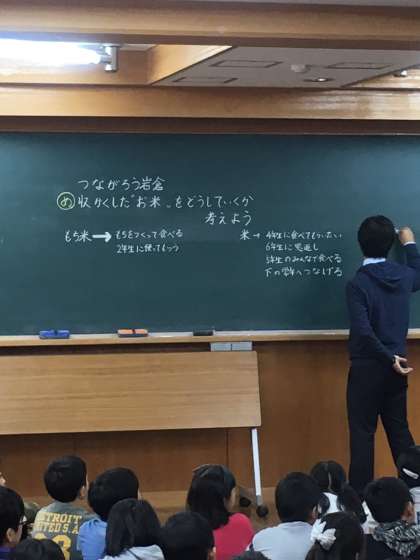 つながろう岩倉
め 収かくした"お米"をどうしていくか
考えよう
もち米→もちをつくって食べる
2年生に使ってもらう
米→4年生に食べてもらいたい
6年生に恩返し
5年生のみんなで食べる
下の学年へつなげる
DETROIT
TED S.A